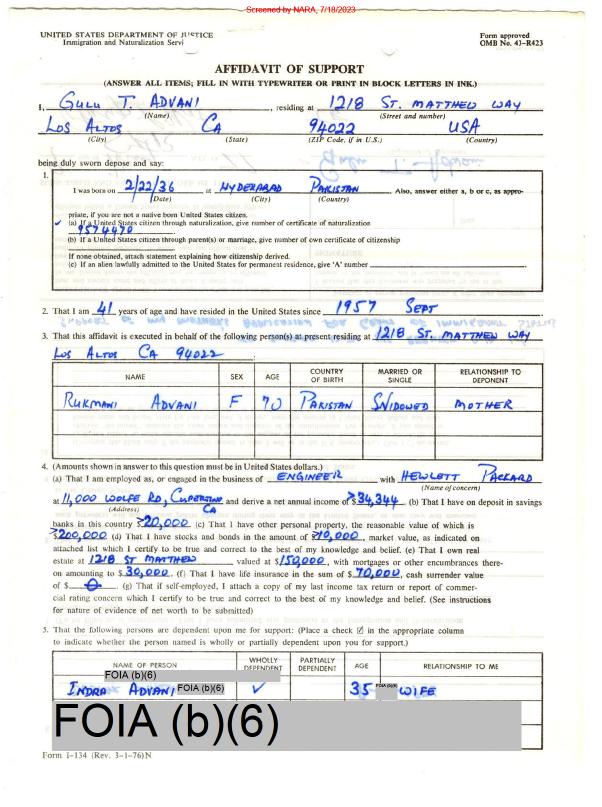 Screened by NARA, 7/18/2023
UNITED STATES DEPARTMENT OF JUSTICE
Immigration and Naturalization Servi
Form approved
OMB No. 43-R423
AFFIDAVIT OF SUPPORT
(ANSWER ALL ITEMS; FILL IN WITH TYPEWRITER OR PRINT IN BLOCK LETTERS IN INK.)
I, GULU T. ADVANI, residing at 1218 ST. MATTHEW WAY
(Name) (Street and number)
LOS ALTOS CA 94022 USA
(City) (State) (ZIP Code, if in U.S.) (Country)
being duly sworn depose and say:
1.
I was born on 2/22/36 at HYDERABAD PAKISTAN Also, answer either a, b or c, as appro-
(Date) (City) (Country)
priate, if you are not a native born United States citizen.
✓ (a) If a United States citizen through naturalization, give number of certificate of naturalization
9574470
(b) If a United States citizen through parent(s) or marriage, give number of own certificate of citizenship
If none obtained, attach statement explaining how citizenship derived.
(c) If an alien lawfully admitted to the United States for permanent residence, give 'A' number
2. That I am 41 years of age and have resided in the United States since 1957 SEPT
3. That this affidavit is executed in behalf of the following person(s) at present residing at 1218 ST. MATTHEW WAY
LOS ALTOS CA 94022
NAME SEX AGE COUNTRY OF BIRTH MARRIED OR SINGLE RELATIONSHIP TO DEPONENT
RUKMANI ADVANI F 70 PAKISTAN WIDOWED MOTHER
4. (Amounts shown in answer to this question must be in United States dollars.)
(a) That I am employed as, or engaged in the business of ENGINEER with HEWLETT PACKARD
(Name of concern)
at 11,000 WOLFE RD, CUPERTINO CA and derive a net annual income of $34,344. (b) That I have on deposit in savings
(Address)
banks in this country $20,000 (c) That I have other personal property, the reasonable value of which is
$200,000 (d) That I have stocks and bonds in the amount of $10,000, market value, as indicated on
attached list which I certify to be true and correct to the best of my knowledge and belief. (e) That I own real
estate at 1218 ST MATTHEW valued at $150,000, with mortgages or other encumbrances there-
on amounting to $30,000. (f) That I have life insurance in the sum of $70,000, cash surrender value
of $ 0. (g) That if self-employed, I attach a copy of my last income tax return or report of commer-
cial rating concern which I certify to be true and correct to the best of my knowledge and belief. (See instructions
for nature of evidence of net worth to be submitted)
5. That the following persons are dependent upon me for support: (Place a check ☑ in the appropriate column
to indicate whether the person named is wholly or partially dependent upon you for support.)
NAME OF PERSON WHOLLY DEPENDENT PARTIALLY DEPENDENT AGE RELATIONSHIP TO ME
FOIA (b)(6)
INDRA ADVANI FOIA (b)(6) ✓ 35 FOIA (b)(6) WIFE
FOIA (b)(6)
Form I-134 (Rev. 3-1-76)N